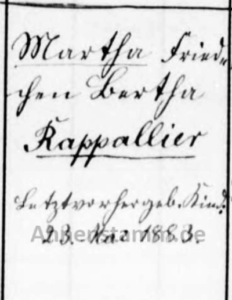 Martha Friede
chen Bertha
Kappallier
Letztvorhergeb. Kind:
23. Mai 1883.
Ahnenstamm.de